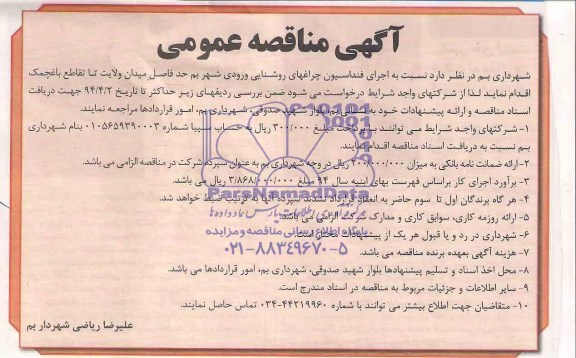 آگهی مناقصه عمومی
شهرداری بم در نظر دارد نسبت به اجرای فنداسیون چراغهای روشنایی ورودی شهر بم حد فاصل میدان ولایت تا تقاطع باغچمک
اقدام نماید لذا از شرکتهای واجد شرایط درخواست می شود ضمن بررسی ردیفهای زیر حداکثر تا تاریخ ۹۴/۴/۲ جهت دریافت
اسناد مناقصه و ارائه پیشنهادات خود به نشانی بم بلوار شهید صدوقی، شهرداری بم، امور قراردادها مراجعه نمایند.
۱- شرکتهای واجد شرایط می توانند با پرداخت مبلغ ۳۰۰/۰۰۰ ریال به حساب سیبا شماره ۰۱۰۵۶۵۹۳۹۰۰۰۳ بنام شهرداری
بم نسبت به دریافت اسناد مناقصه اقدام نمایند.
۲- ارائه ضمانت نامه بانکی به میزان ۲۰۰/۰۰۰/۰۰۰ ریال در وجه شهرداری بم به عنوان سپرده شرکت در مناقصه الزامی می باشد.
۳- برآورد اجرای کار براساس فهرست بهای ابنیه سال ۹۴ مبلغ ۳/۸۶۸/۰۰۰/۰۰۰ ریال می باشد.
۴- هر گاه برندگان اول تا سوم حاضر به انعقاد قرارداد نشدند سپرده آنها به ترتیب ضبط خواهد شد.
۵- ارائه رزومه کاری، سوابق کاری و مدارک شرکت الزامی می باشد.
۶- شهرداری در رد و یا قبول هر یک از پیشنهادات مختار است.
۷- هزینه آگهی بعهده برنده مناقصه می باشد.
۸- محل اخذ اسناد و تسلیم پیشنهادها بلوار شهید صدوقی، شهرداری بم، امور قراردادها می باشد.
۹- سایر اطلاعات و جزئیات مربوط به مناقصه در اسناد مندرج است.
۱۰- متقاضیان جهت اطلاع بیشتر می توانند با شماره ۴۴۲۱۹۹۶۰-۰۳۴ تماس حاصل نمایند.
علیرضا ریاضی شهردار بم
ParsNamadData
پایگاه اطلاع رسانی مناقصه و مزایده
۰۲۱-۸۸۳۴۹۶۷۰-۵